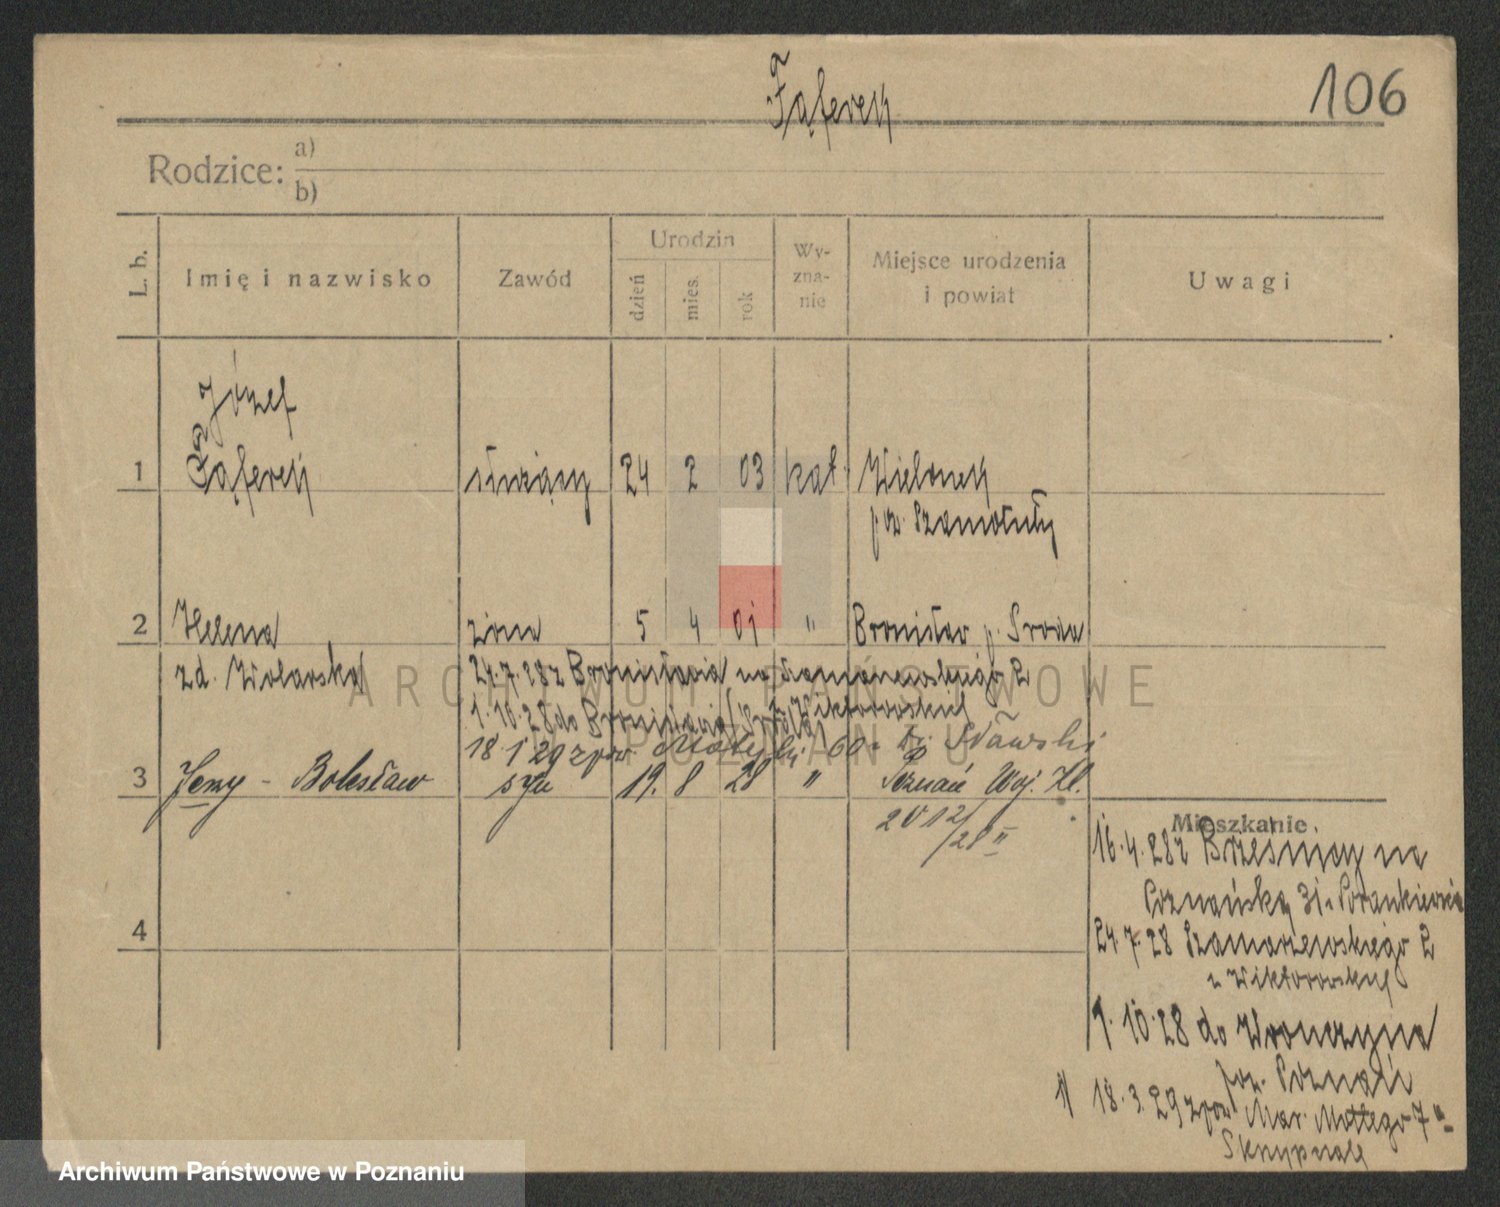 Fąferek
106
Rodzice:
a)
b)
L. b.
Imię i nazwisko
Zawód
Urodzin
dzień
mies.
rok
Wy-
zna-
nie
Miejsce urodzenia
i powiat
Uwagi
Józef
1 Fąferek służący 24 2 03 kat. Wielonek
p. Szamotuły
2 Helena żona 5 4 01 " Bronisław p. Środa
zd. Wolarska 24.7.28 z Bronisławia na 2
1.10.28 do Bronisławia
18 1 29 zpow. Matejki 60
3 Jerzy - Bolesław syn 19. 8 28 " Poznań Woj. Kl.
12/28
4
Mieszkanie.
16.4.28 z na
Poznańską 31
24.7.28 Szamarzewskiego 2
u Wiktorowskiej
1.10.28 do Wronczyna
pow. Poznań
18.3.29 zpow. Mar. Mottego 7
ARCHIWUM PAŃSTWOWE
W POZNANIU
Archiwum Państwowe w Poznaniu